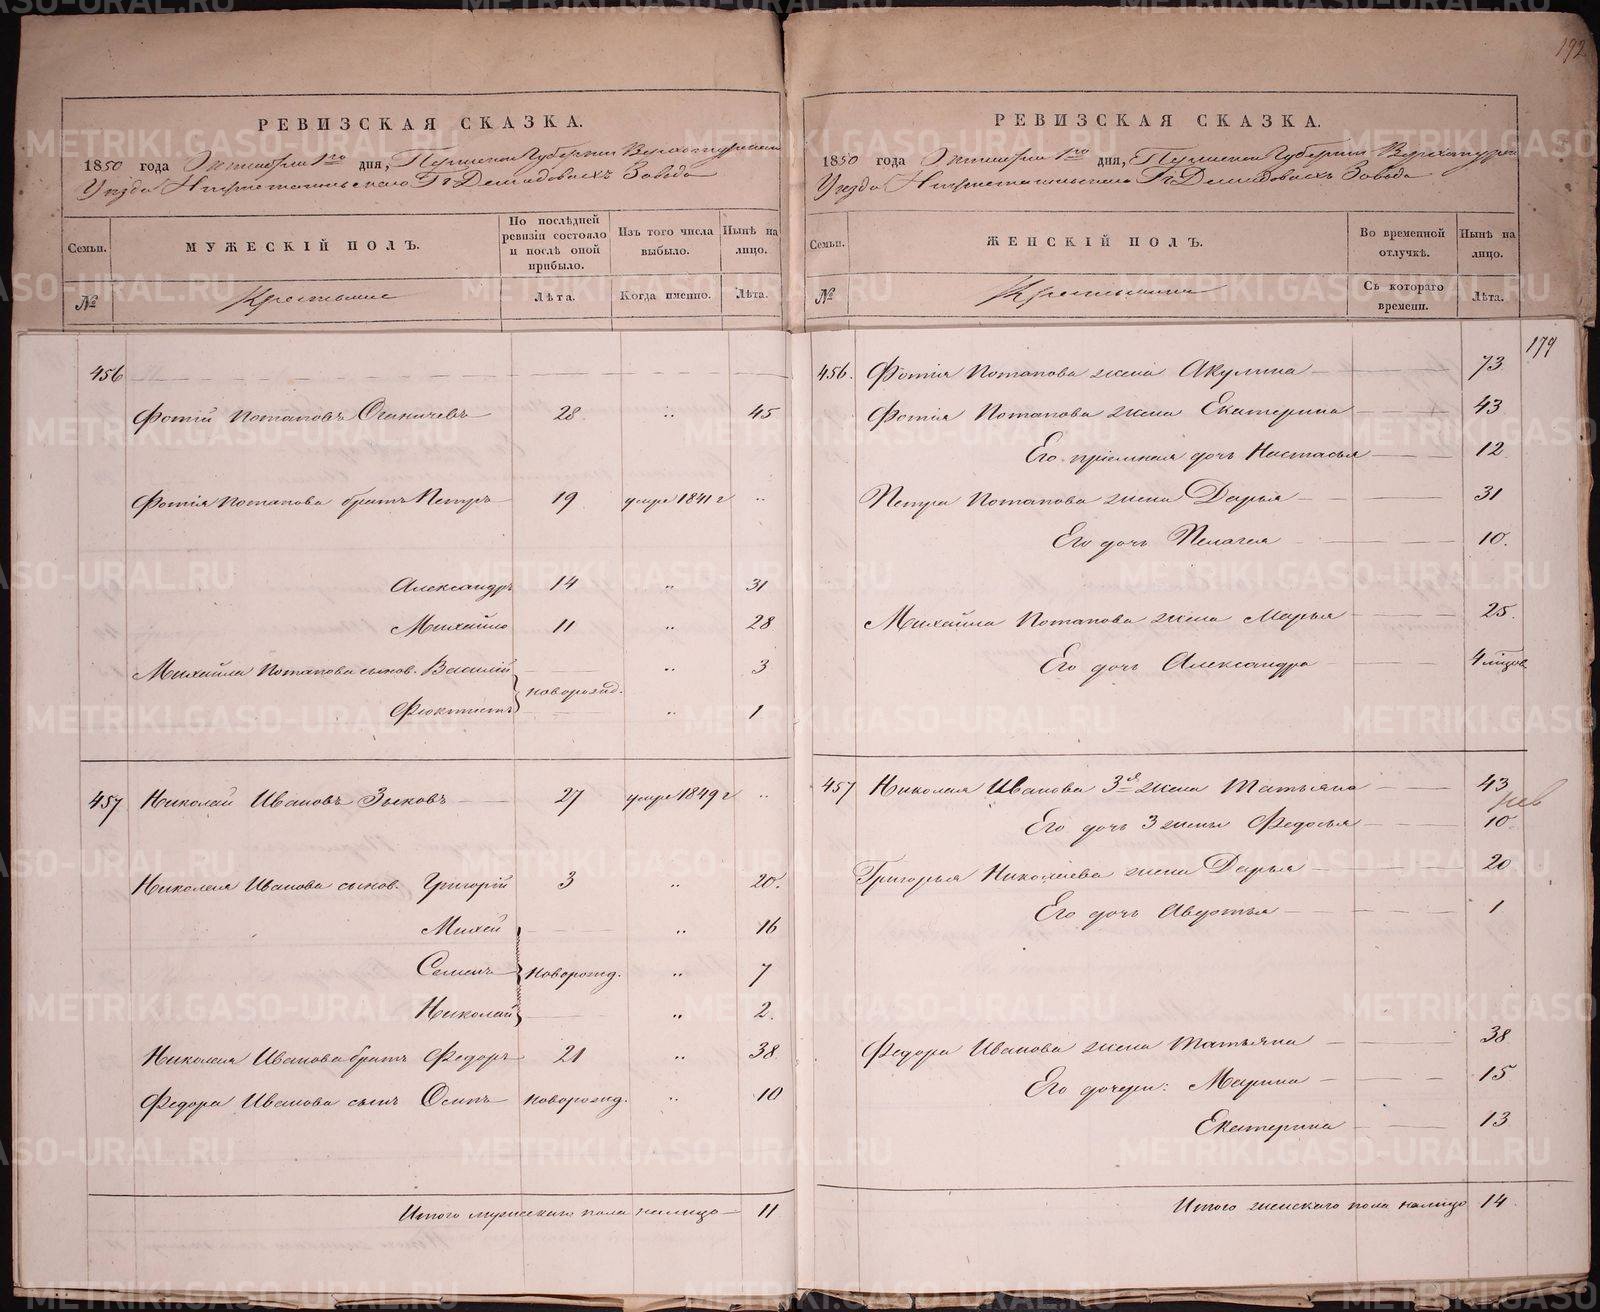 192
РЕВИЗСКАЯ СКАЗКА.
1850 года Октября 1го дня, Пермской Губернии Верхотурскаго
Уѣзда Нижнетагильскаго Гг Демидовыхъ Завода
Семьи.
МУЖЕСКІЙ ПОЛЪ.
По послѣдней ревизіи состояло и послѣ оной прибыло.
Изъ того числа выбыло.
Нынѣ на лицо.
№
Крестьяне
Лѣта.
Когда именно.
Лѣта.
456
Фотій Потаповъ 28 .. 45
Фотія Потапова братъ Петръ 19 умре 1841 г ..
Александръ 14 .. 31
Михайло 11 .. 28
Михайла Потапова сынов. Василій .. 3
новорожд.
Феоктистъ .. 1
457 Николай Ивановъ Зыковъ 27 умре 1849 г ..
Николая Иванова сынов. Григорій 3 .. 20.
Михей .. 16
Семенъ новорожд. .. 7
Николай .. 2.
Николая Иванова братъ Федоръ 21 .. 38
Федора Иванова сынъ Осипъ новорожд. .. 10
Итого мужескаго пола налицо 11
РЕВИЗСКАЯ СКАЗКА.
1850 года Октября 1го дня, Пермской Губернии Верхотурскаго
Уѣзда Нижнетагильскаго Гг Демидовыхъ Завода
Семьи.
ЖЕНСКІЙ ПОЛЪ.
Во временной отлучкѣ.
Нынѣ на лицо.
№
Крестьянки
Съ котораго времени.
Лѣта.
179
456. Фотія Потапова жена Акулина 73
Фотія Потапова жена Екатерина 43
Его пріемная дочь Настасья 12
Петра Потапова жена Дарья 31
Его дочь Пелагея 10.
Михайла Потапова жена Марья 25.
Его дочь Александра 4 мѣсяц
457 Николая Иванова 3я жена Татьяна 43
Его дочь 3 жены Федосья 10
Григорья Николаева жена Дарья 20
Его дочь Авдотья 1
Федора Иванова жена Татьяна 38
Его дочери: Марина 15
Екатерина 13
Итого женскаго пола налицо 14
METRIKI.GASO-URAL.RU